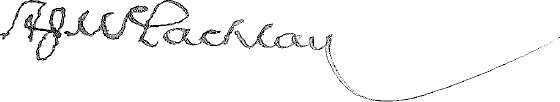 A J McLachlan